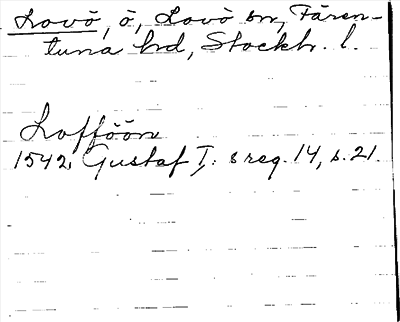 Lovö, ö, Lovö sn, Fären-
tuna hd, Stockh. l.
Lofföön
1542. Gustaf I: s reg. 14, s. 21.